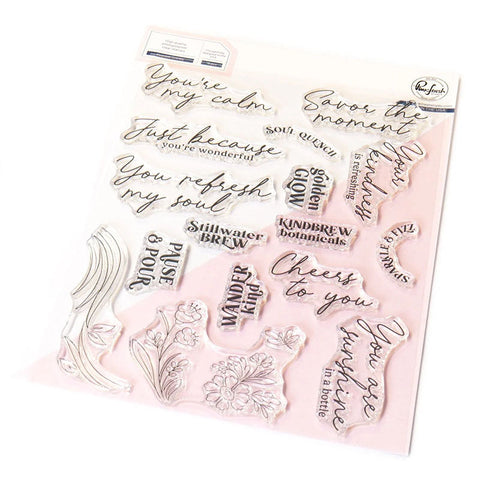 You're
my calm
Savor the
moment
Just because
you're wonderful
SOUL QUENCH
Your
kindness
is refreshing
You refresh
my soul
golden
GLOW
Stillwater
BREW
KINDBREW
botanicals
SPARKLE & FIZZ
PAUSE
& POUR
WANDER
Cheers
to you
You are
sunshine
in a bottle